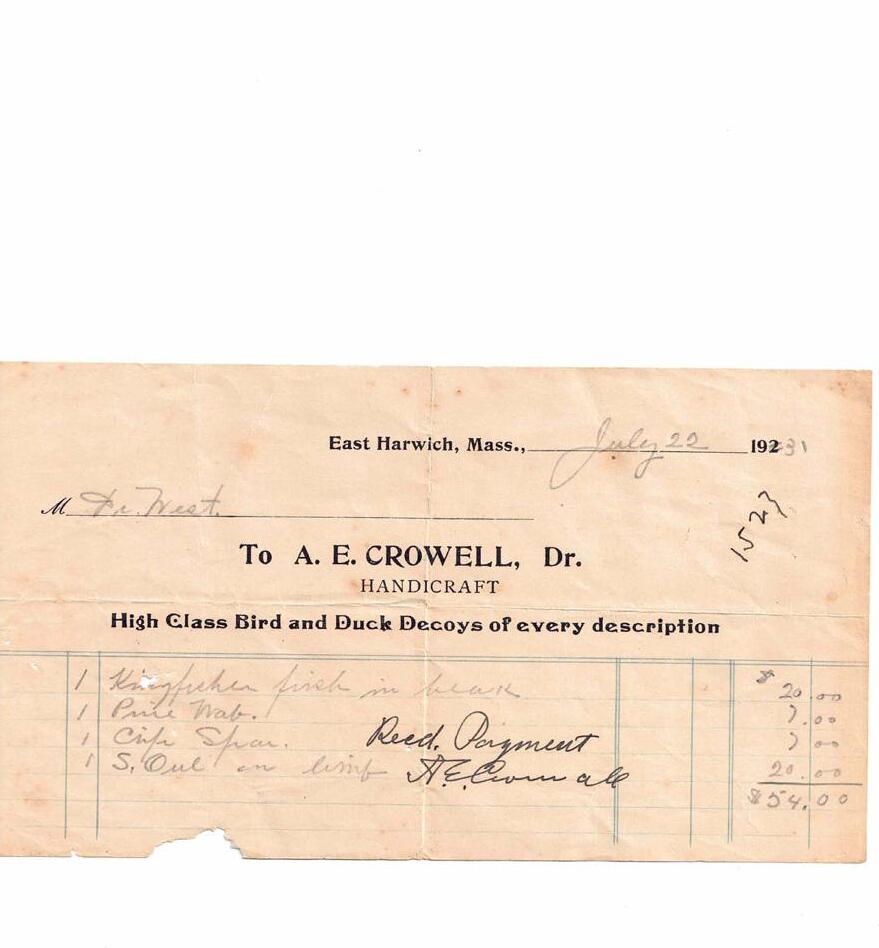 East Harwich, Mass., July 22 19231
M Dr. West.
1523
To A. E. CROWELL, Dr.
HANDICRAFT
High Class Bird and Duck Decoys of every description
1 Kingfisher fish in beak $ 20.00
1 Pine Wab. 7.00
1 Chip Spar. 7 00
Recd. Payment
1 S. Owl on limb 20.00
A. E. Crowell
$54.00